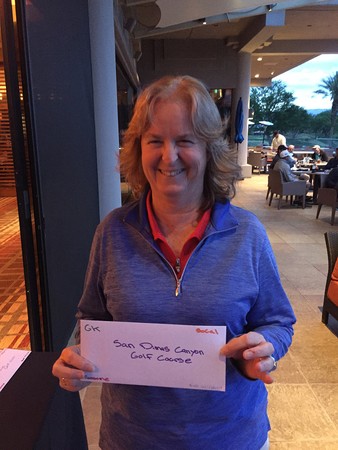 GK
SoCal
San Dimas Canyon
Golf Course